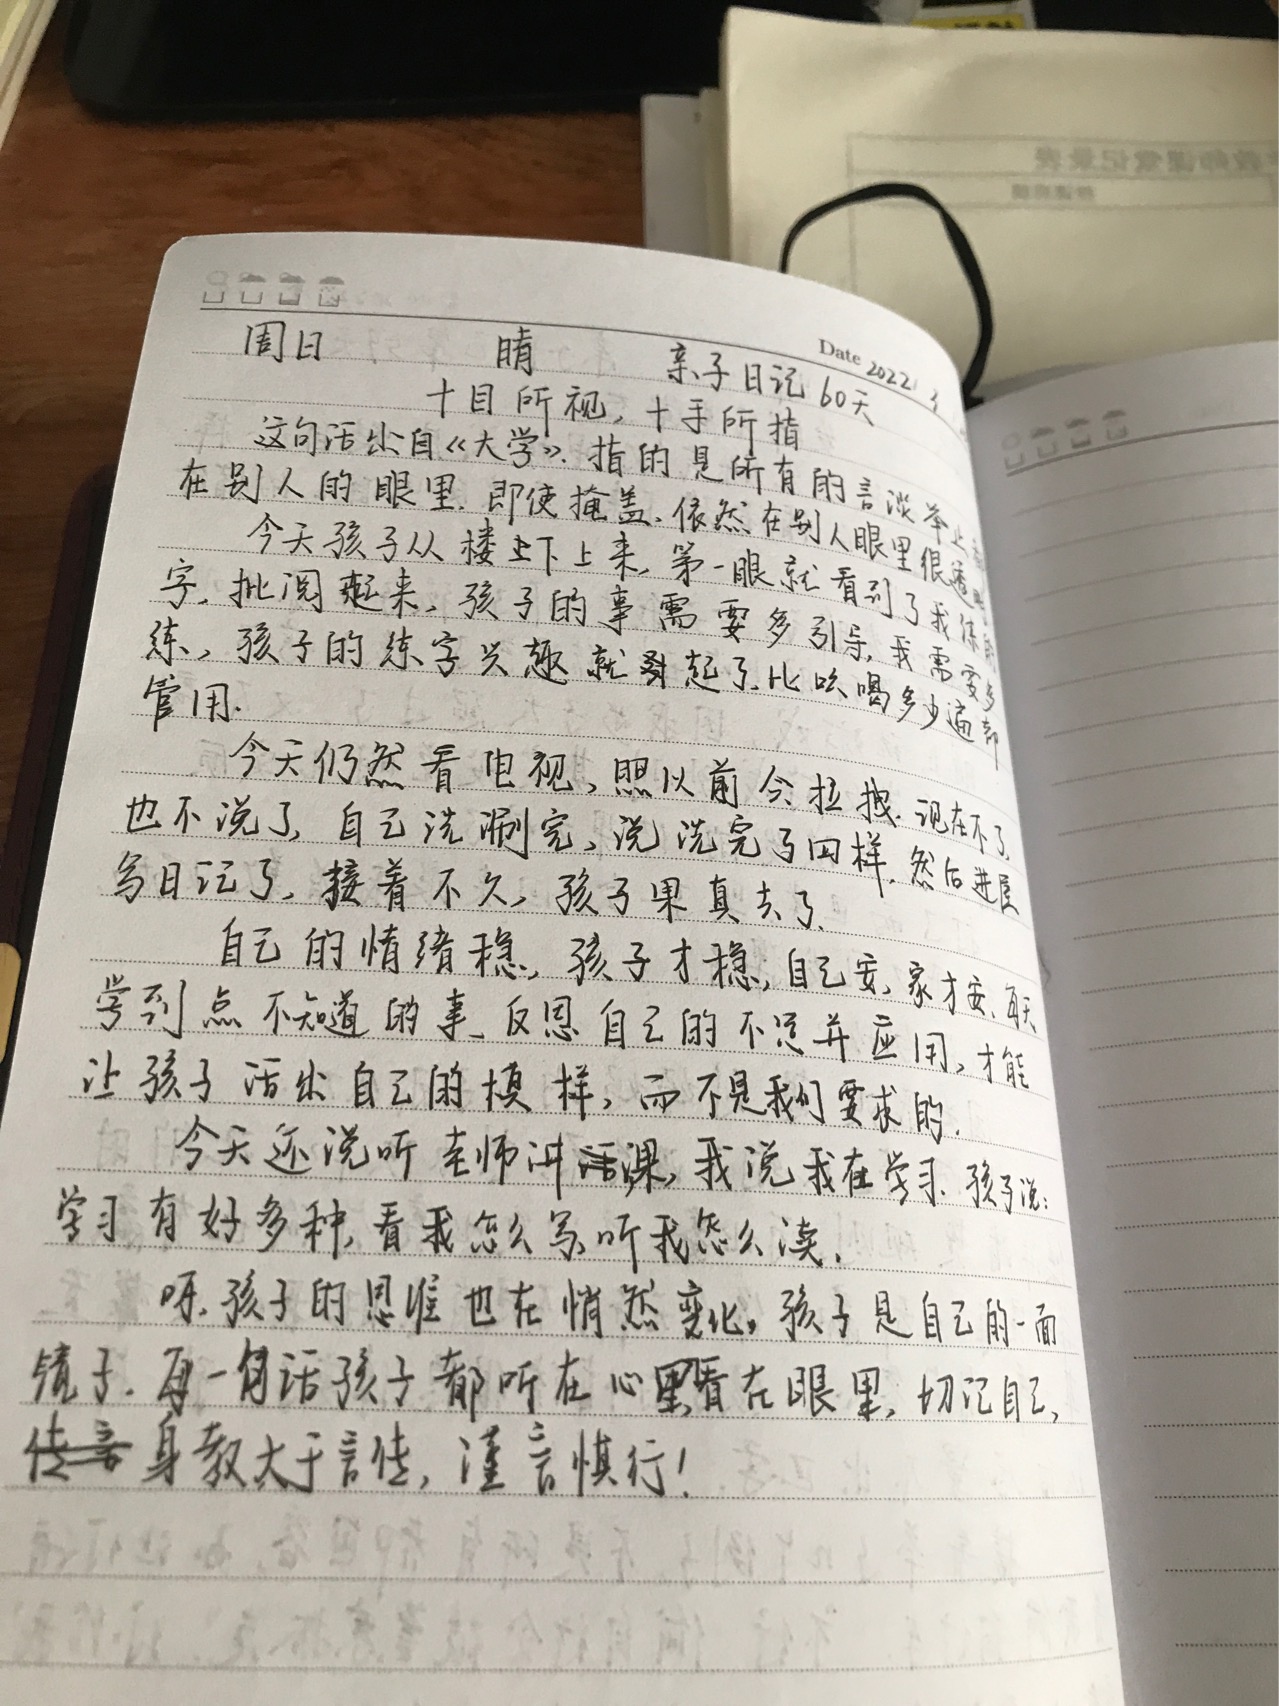 Date 2022 3
周日 晴 亲子日记60天
十目所视，十手所指
这句话出自《大学》.指的是所有的言谈举止
在别人的眼里.即使掩盖.依然在别人眼里很透
今天孩子从楼上下上来,第一眼就看到了我练的
字,批阅起来,孩子的事需要多引导,我需要多
练,孩子的练字兴趣就引起了.比吆喝多少遍都
管用.
今天仍然看电视,照以前会拉拽.现在不了,
也不说了,自己洗涮完,说洗完了四样.然后进屋
写日记了,接着不久,孩子果真去了.
自己的情绪稳,孩子才稳,自己安,家才安.每天
学到点不知道的事、反思自己的不足并应用,才能
让孩子活出自己的模样,而不是我们要求的.
今天还说听老师讲课,我说我在学习.孩子说:
学习有好多种,看我怎么写,听我怎么读.
呀.孩子的思维也在悄然变化,孩子是自己的一面
镜子.每一句话孩子都听在心里,看在眼里,切记自己,
身教大于言传,谨言慎行!
教师课堂记录表